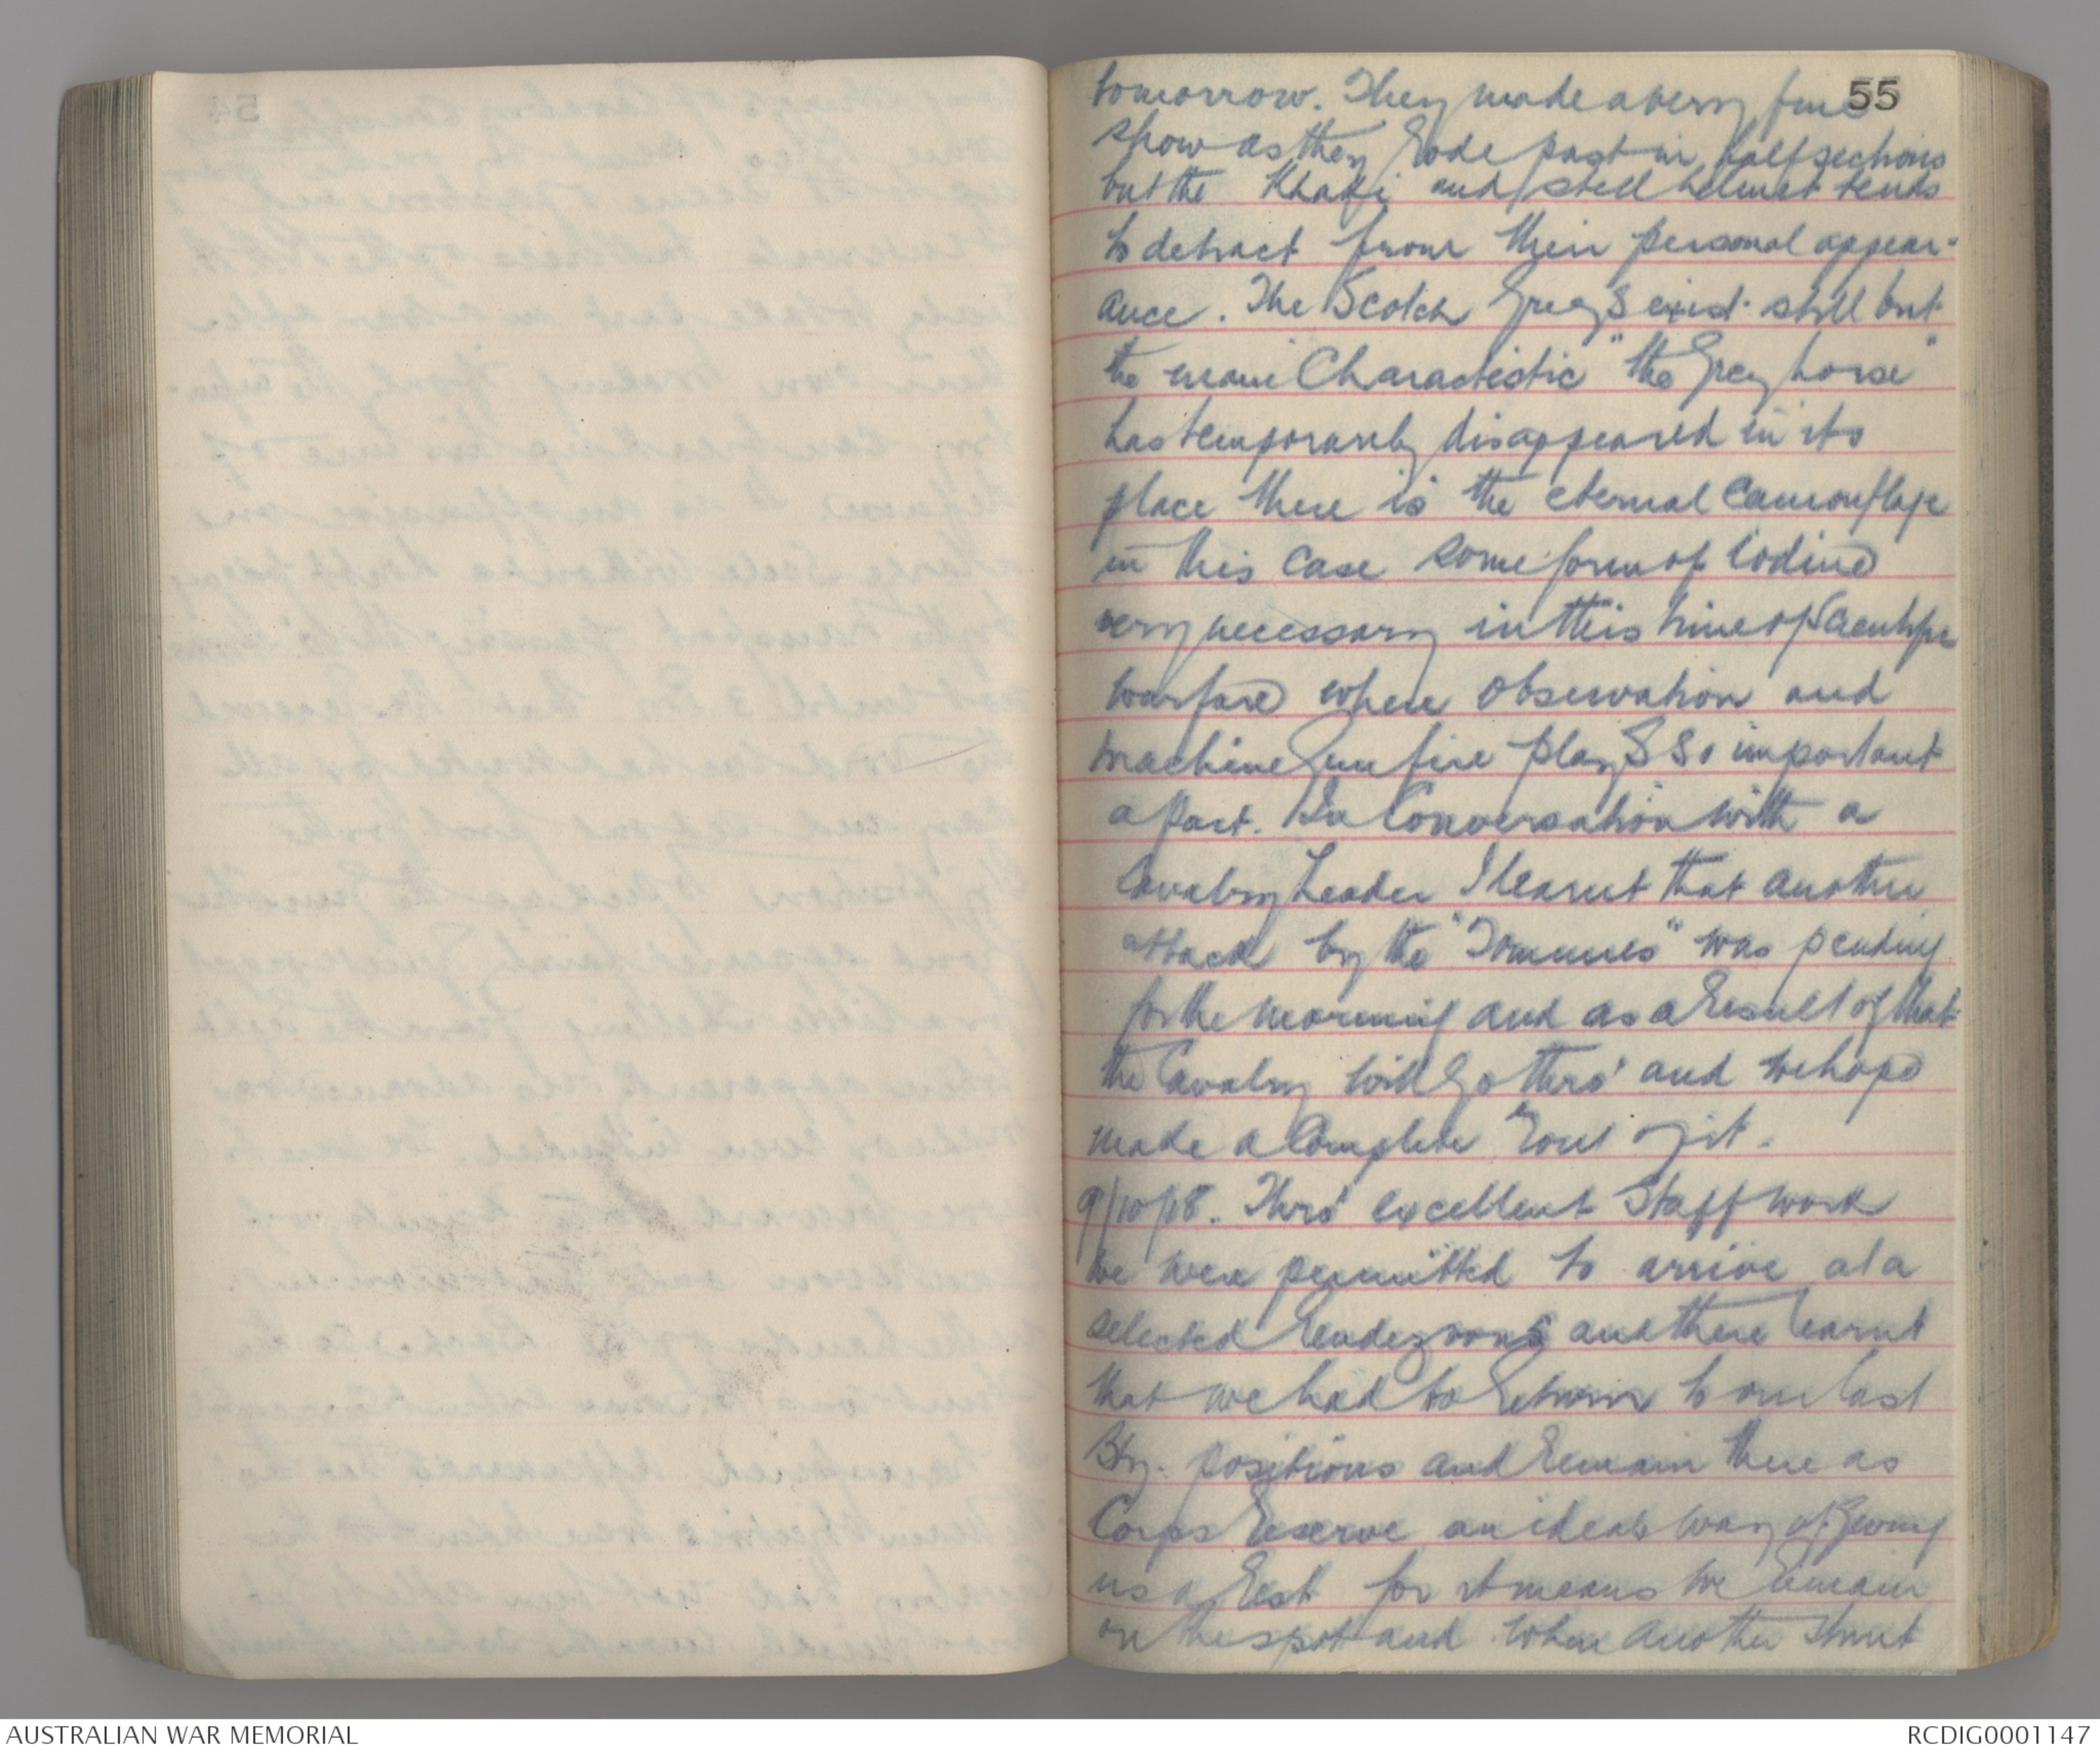 55
tomorrow. They made a very fine
show as they rode past in half sections
but the Khaki and steel helmet tends
to detract from their personal appear-
ance. The Scotch Greys exist still but
the main Charactistic "the Grey horse"
has temporarily disappeared in its
place there is the eternal Camouflage
in this case some form of Iodine
very necessary in this time of
warfare where observation and
machine Gun fire plays so important
a part. In Conversation with a
Cavalry Leader I learnt that another
attack by the "Tommies" was pending
for the morning and as a result of that
the Cavalry will go thro' and we hope
made a Complete rout of it.
9/10/18. Thro' excellent Staff work
we were permitted to arrive at a
selected rendezvous and there learnt
that we had to return to our last
Bty. positions and remain there as
Corps Reserve an ideal way of giving
us a rest for it means we remain
on the spot and when another stunt
AUSTRALIAN WAR MEMORIAL
RCDIG0001147